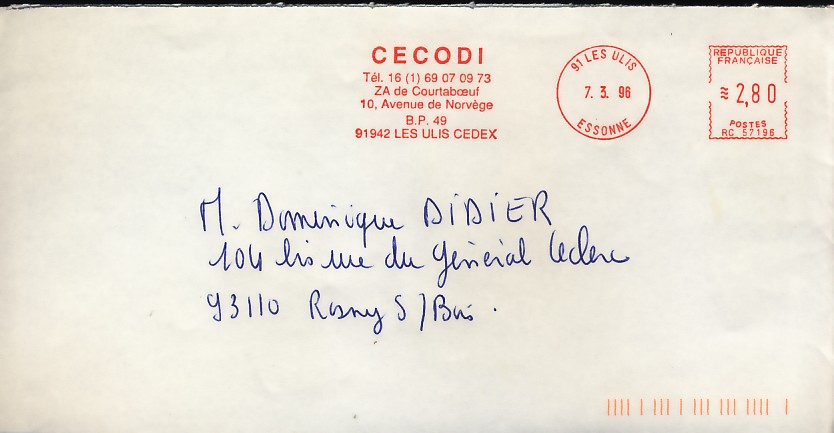 CECODI
Tél. 16 (1) 69 07 09 73
ZA de Courtabœuf
10, Avenue de Norvège
B.P. 49
91942 LES ULIS CEDEX
91 LES ULIS
7. 3. 96
ESSONNE
REPUBLIQUE
FRANCAISE
≈ 2,80
POSTES
RC 57196
M. Dominique DIDIER
104 bis rue du Général Leclerc
93110 Rosny S/Bois.